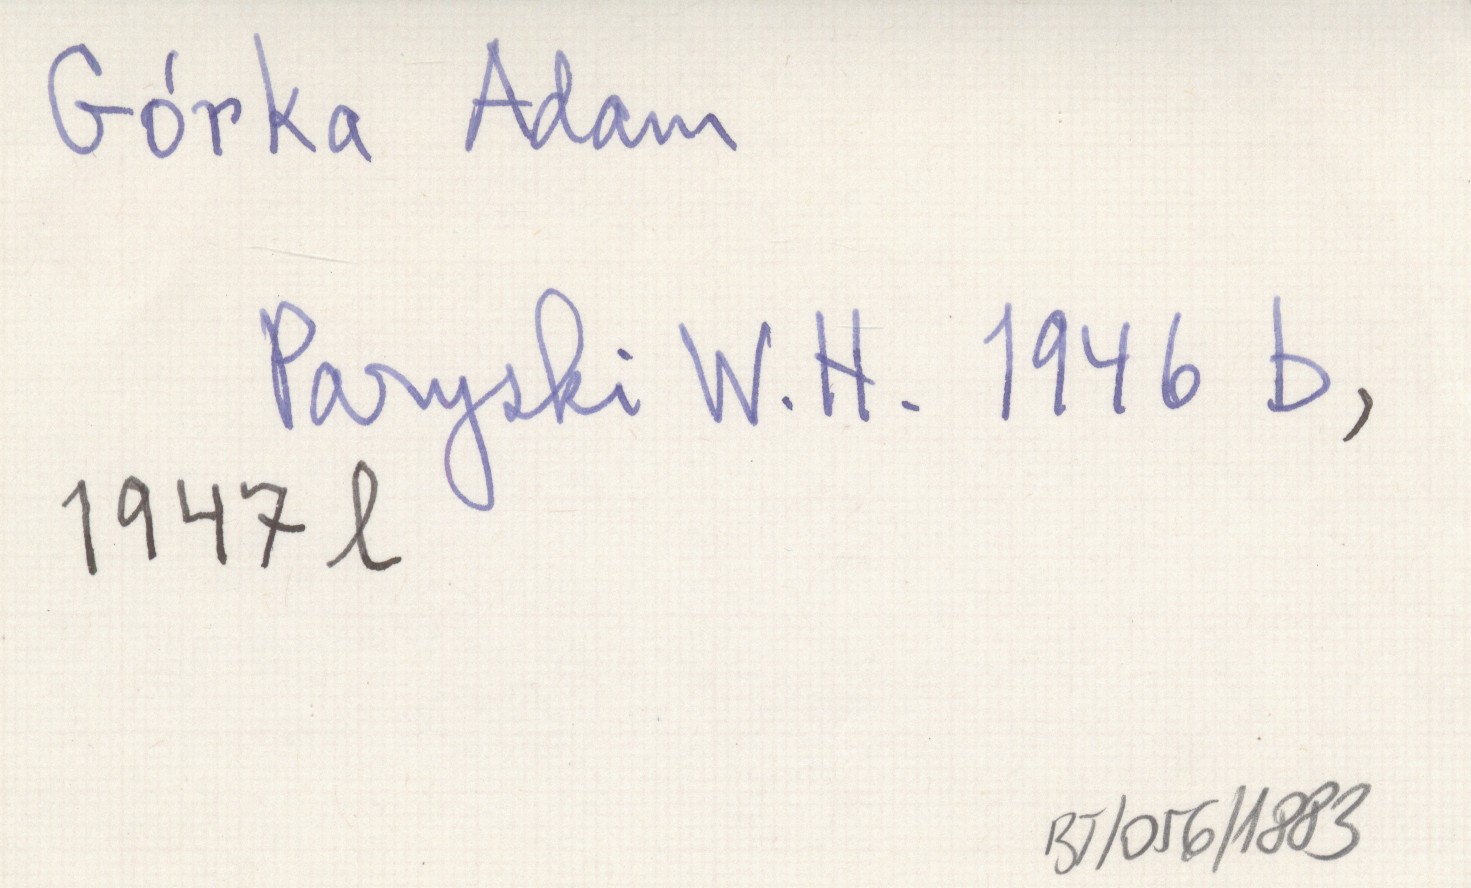 Górka Adam
Paryski W.H. 1946 b,
1947 l
BJ/056/1883